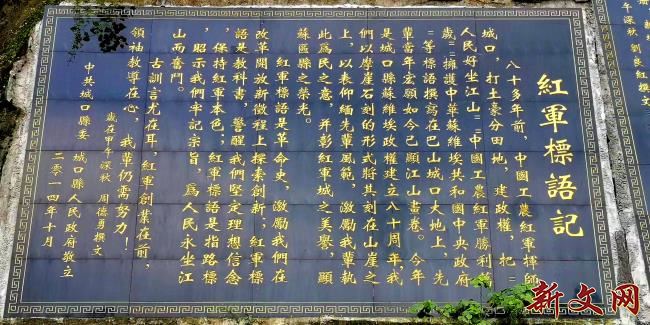 紅軍標語記
八十多年前，中國工農紅軍揮師
城口，打土豪分田地，建政權，把“
人民好坐江山”“中國工農紅軍勝利萬
歲”“擁護中華蘇維埃共和國中央政府
”等標語撰寫在巴山城口大地上，先
輩當年宏願如今已顯江山畫卷。今年
是城口縣蘇維埃政權建立八十周年，我
們以摩崖石刻的形式將其刻在山崖之
上，以表仰緬先輩風範，激勵我輩執
政為民之意，并彰紅軍城之美譽，顯
蘇區縣之榮光。
紅軍標語是革命史，激勵我們在
改革開放新徵程上探索創新，紅軍標
語是教科書，警醒我們堅定理想信念
，保持紅軍本色；紅軍標語是指路標
，昭示我們牢記宗旨，為人民永坐江
山而奮鬥。
古訓言尤在耳，紅軍創業在前，
領袖教導在心，我輩仍需努力！
歲在甲午深秋 周德勇撰文
中共城口縣委 城口縣人民政府敬立
二零一四年十月
年深秋 劉良紅撰文
新文网